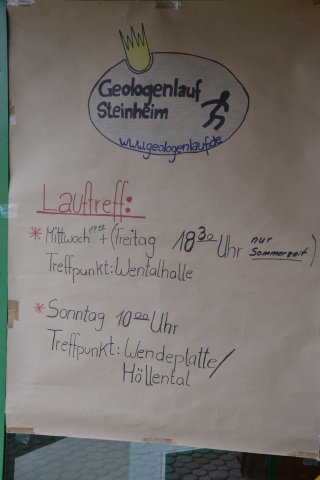 Geologenlauf
Steinheim
www.geologenlauf.de
Lauftreff:
* Mittwoch + (Freitag 18 30 Uhr nur Sommerzeit)
Treffpunkt: Wentalhalle
* Sonntag 10 00 Uhr
Treffpunkt: Wendeplatte/
Höllental